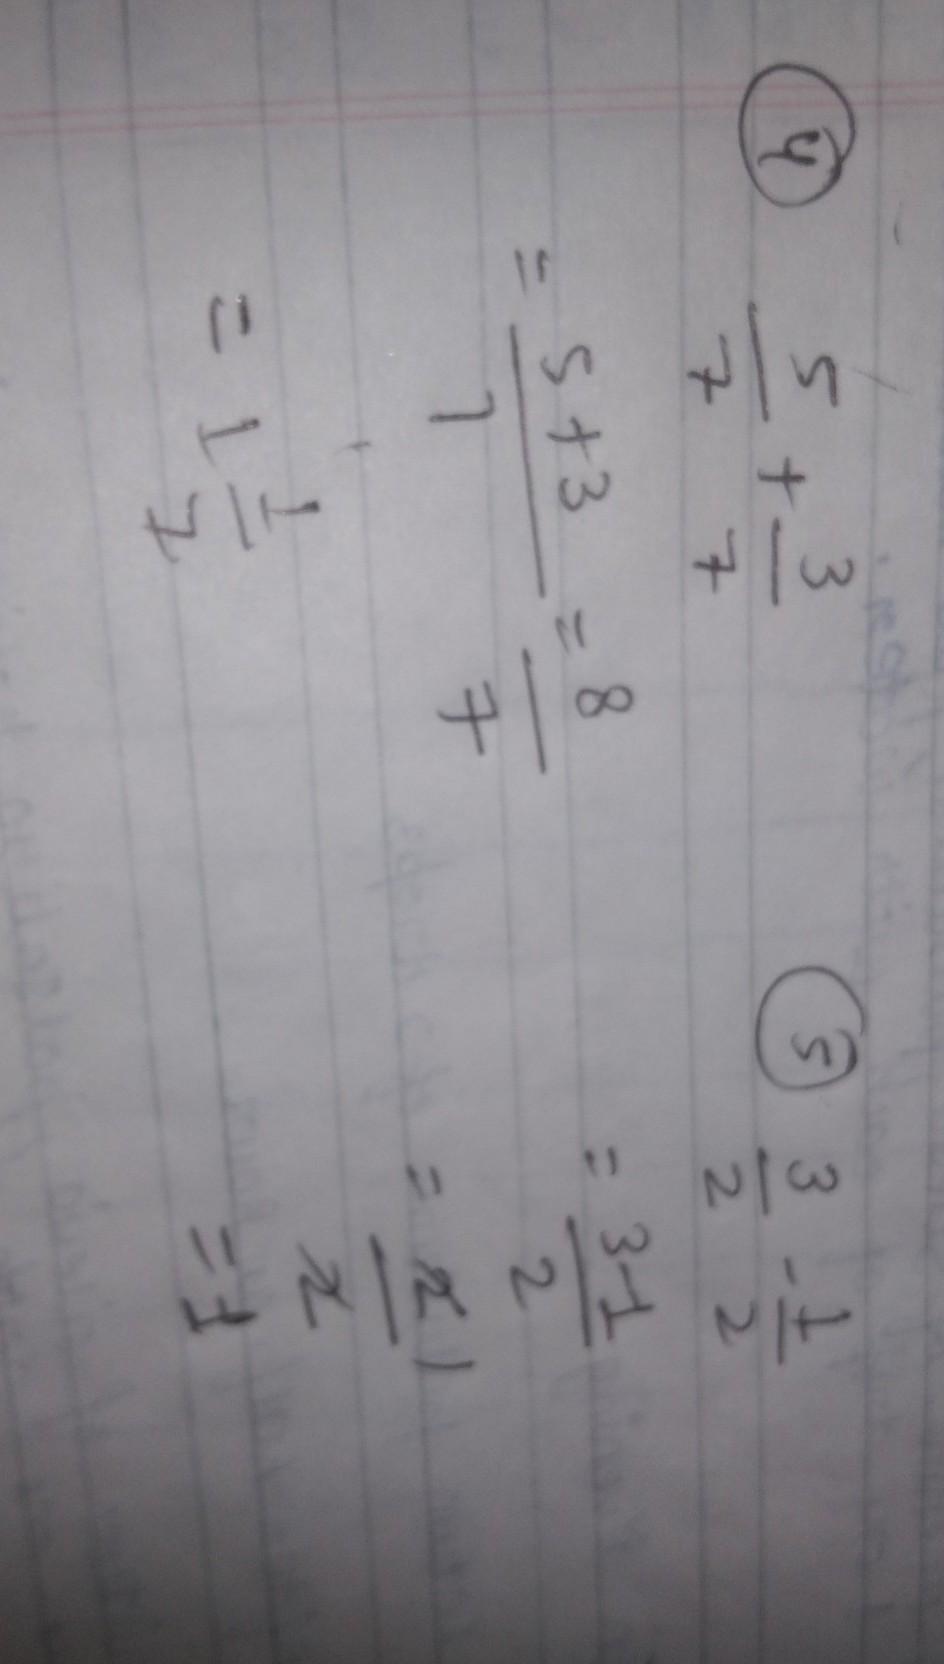 4 5/7 + 3/7
= 5+3/7 = 8/7
= 1 1/7
5 3/2 - 1/2
= 3-1/2
= 2/2 1
= 1